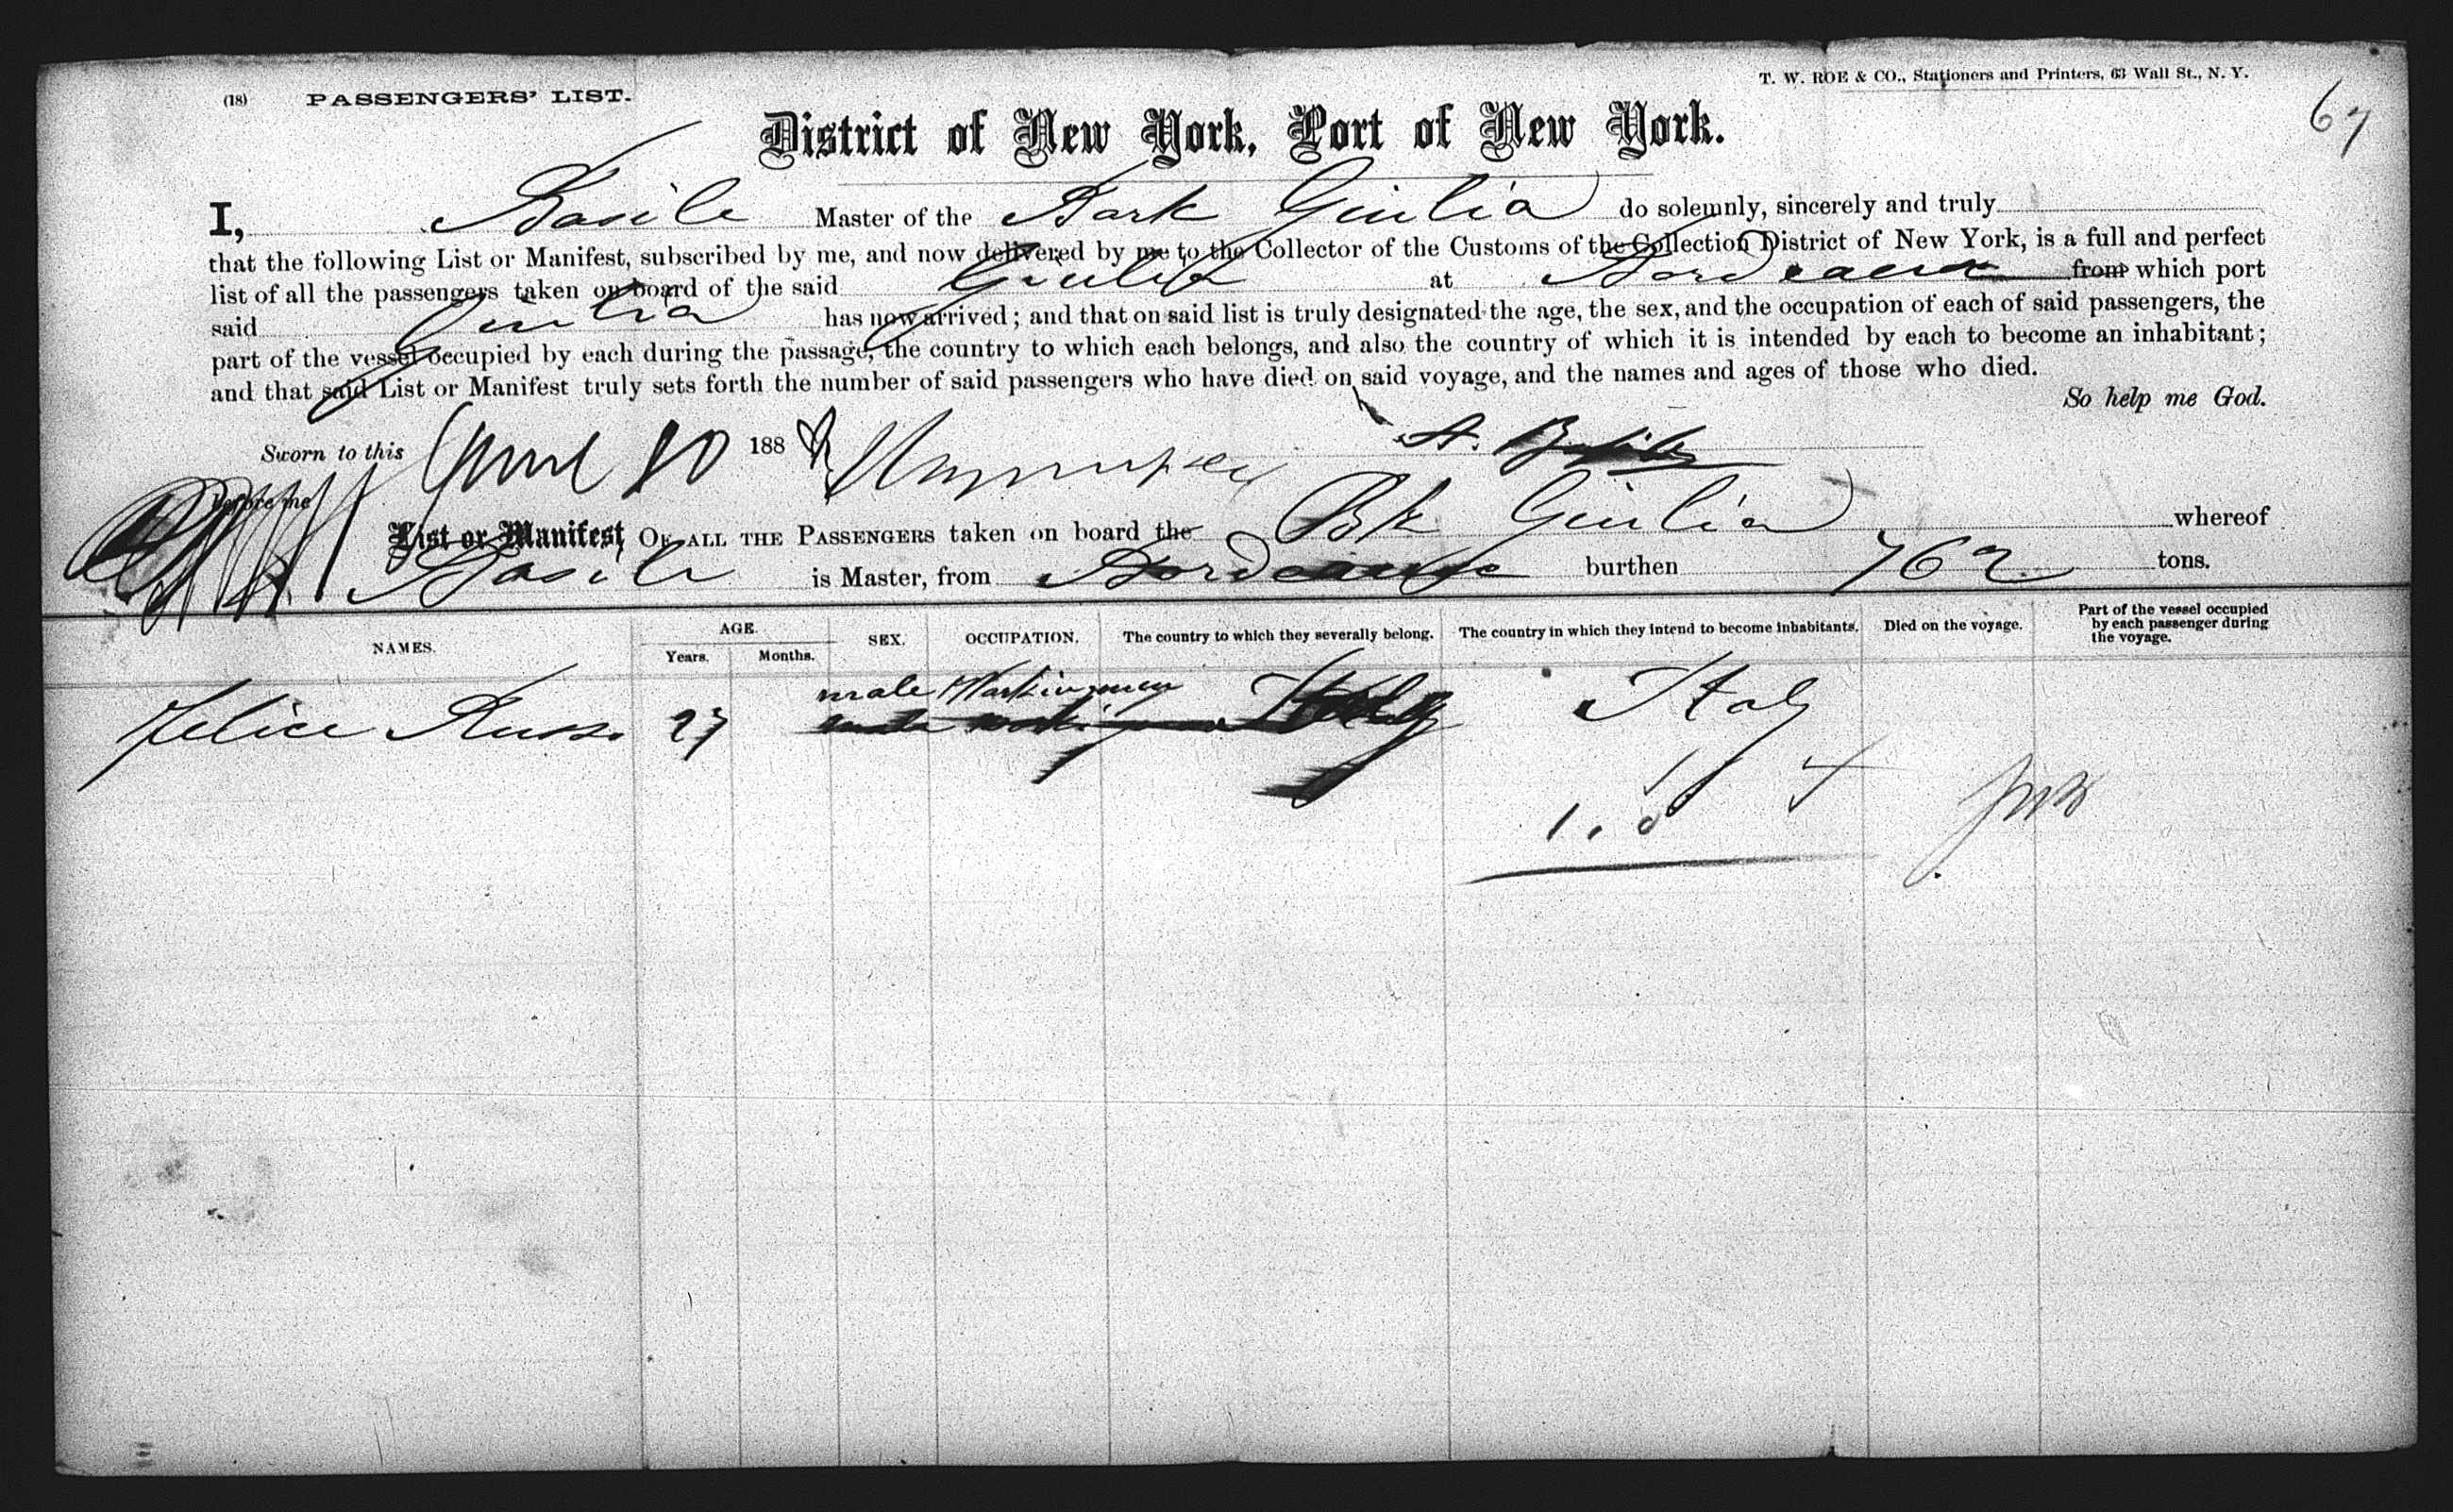 T. W. ROE & CO., Stationers and Printers, 63 Wall St., N. Y.
(18) PASSENGERS' LIST.
67
District of New York, Port of New York.
I, Basile Master of the Bark Giulia do solemnly, sincerely and truly
that the following List or Manifest, subscribed by me, and now delivered by me to the Collector of the Customs of the Collection District of New York, is a full and perfect
list of all the passengers taken on board of the said Giulia at Bordeaux from which port
said Giulia has now arrived; and that on said list is truly designated the age, the sex, and the occupation of each of said passengers, the
part of the vessel occupied by each during the passage, the country to which each belongs, and also the country of which it is intended by each to become an inhabitant;
and that said List or Manifest truly sets forth the number of said passengers who have died on said voyage, and the names and ages of those who died.
So help me God.
Sworn to this 188
before me
List or Manifest, OF ALL THE PASSENGERS taken on board the Bk Giulia whereof
Basile is Master, from Bordeaux burthen 762 tons.
NAMES. AGE. Years. Months. SEX. OCCUPATION. The country to which they severally belong. The country in which they intend to become inhabitants. Died on the voyage. Part of the vessel occupied by each passenger during the voyage.
Felice Russo 27 male Workingman Italy Italy